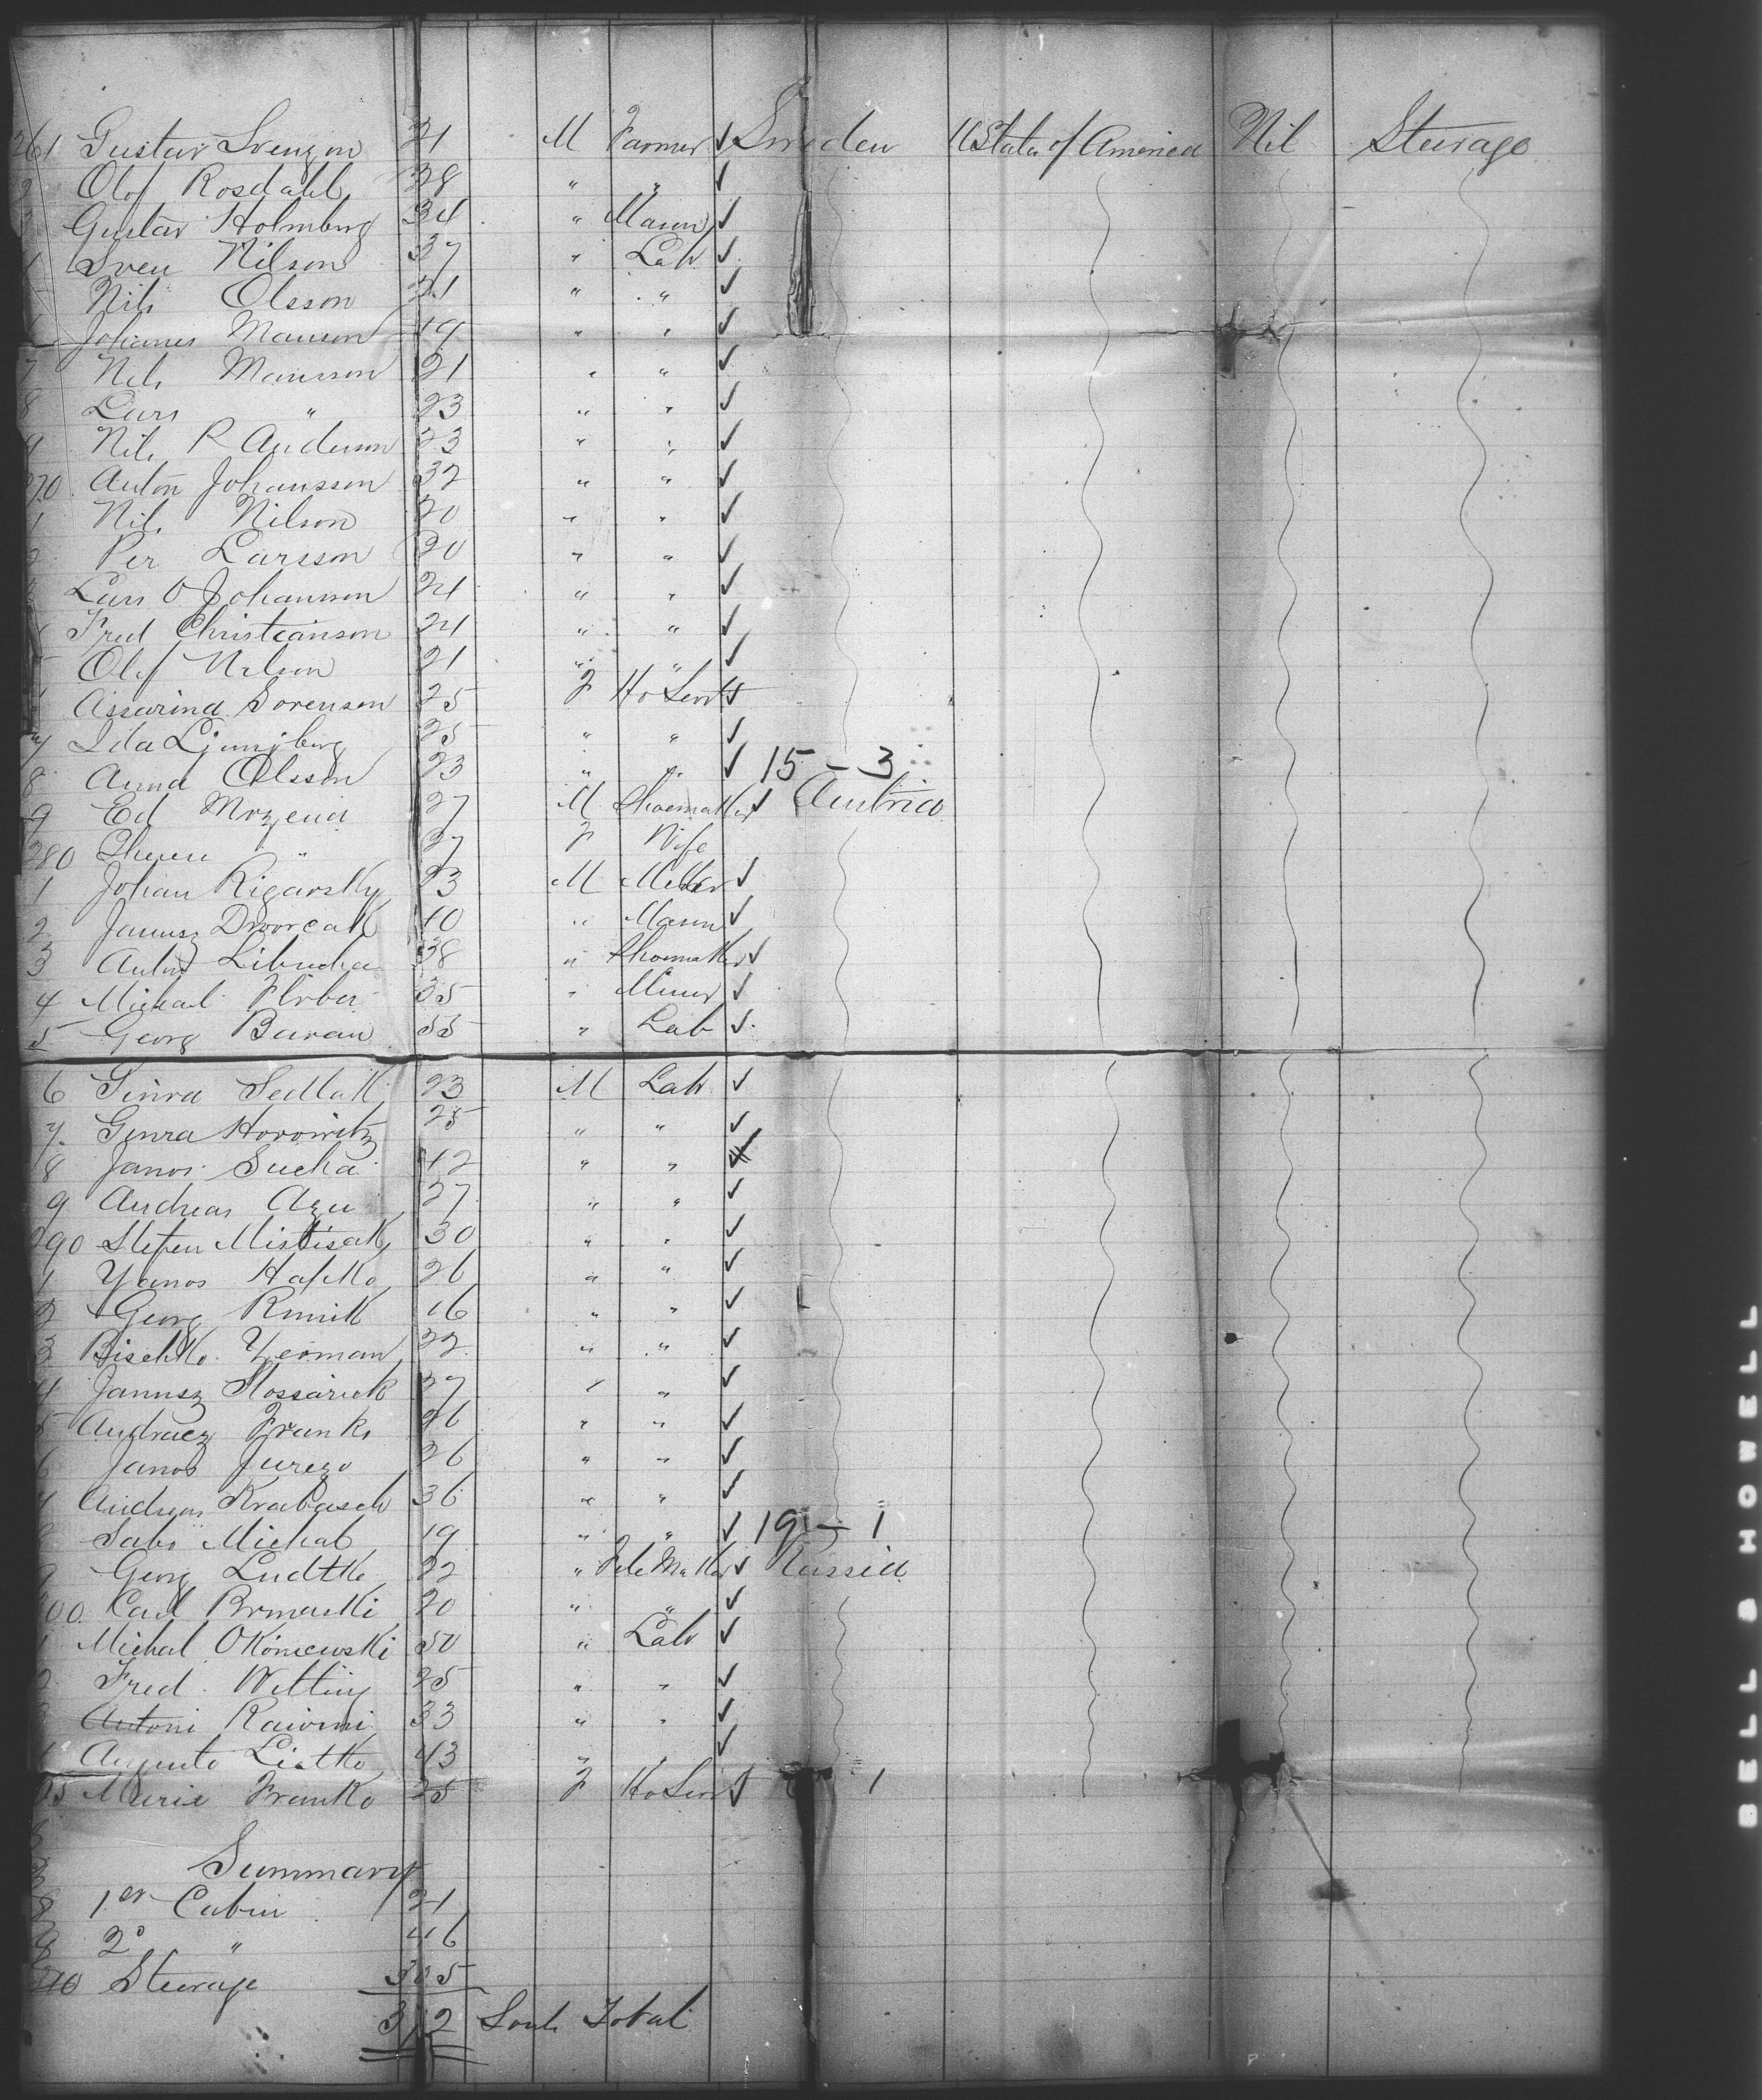 261 Gustav Svenzon 21 M Farmer ✓ Sweden U State of America Nil Steerage
2 Olof Rosdahl 38 " " ✓
3 Gustav Holmberg 34 " Mason ✓
4 Sven Nilson 37 " Lab ✓
5 Nils Olsson 21 " " ✓
6 Johannes Manson 19 " " ✓
7 Nils Mansson 21 " " ✓
8 Lars " 23 " " ✓
9 Nils P Anderson 23 " " ✓
270 Anton Johansson 32 " " ✓
1 Nils Nilson 20 " " ✓
2 Per Larsson 20 " " ✓
Lars O Johannson 24 " " ✓
Fred Christianson 24 " " ✓
Olof Nilson 21 " " ✓
Assarina Sorensen 25 F Ho Servt ✓
7 Ida Ljungberg 25 " " ✓
8 Anna Olsson 23 " " ✓ 15 – 3
9 Ed Mrzena 27 M Shoemaker ✓ Austria
280 " 27 F Wife
1 Johan Rigarsky 23 M Miller ✓
2 Janusz Dworcak 40 " Mason ✓
3 Anton Libucha 38 " Shoemaker ✓
4 Michael Hrber 35 " Miner ✓
5 Georg Buran 35 " Lab ✓
6 Sedlak 23 M Lab ✓
7 Genra Horowitz 25 " " ✓
8 Janos Sucha 42 " " ✓
9 Andreas Azu 27 " " ✓
290 Stefen Mistisak 30 " " ✓
1 Yanos Hafko 26 " " ✓
2 Georg Rimik 16 " " ✓
3 Bischko Yerman 22 " " ✓
4 Janusz Kossarick 27 " " ✓
5 Andracz Franks 26 " " ✓
6 Janos Jurezo 26 " " ✓
7 Andreas Krabasch 36 " " ✓
8 Sabo Michal 19 " " ✓ 19 – 1
9 Georg Ludtke 22 " Maker ✓ Russia
300 Carl Brmaski 20 " " ✓
1 Michal Okoniewski 50 " Lab ✓
2 Fred Witting 25 " " ✓
3 Antoni 33 " " ✓
4 Liatko 43 " " ✓
25 Marie Franko 25 F Ho Servt ✓ 1
Summary
8 1er Cabin 21
9 2o " 46
310 Steerage 305
312 Souls Total
BELL & HOWELL